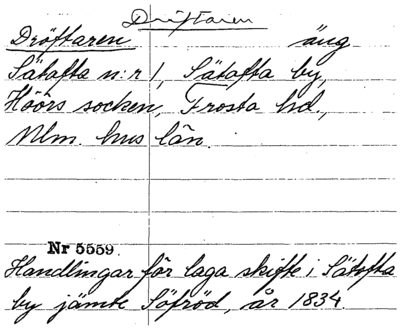 Dröftaren
Dröftaren äng
Sätofta n:r 1, Sätofta by,
Höörs socken, Frosta hd.,
Mlm. hus län.
Nr 5559.
Handlingar för laga skifte i Sätofta
by jämte Söfröd, år 1834.